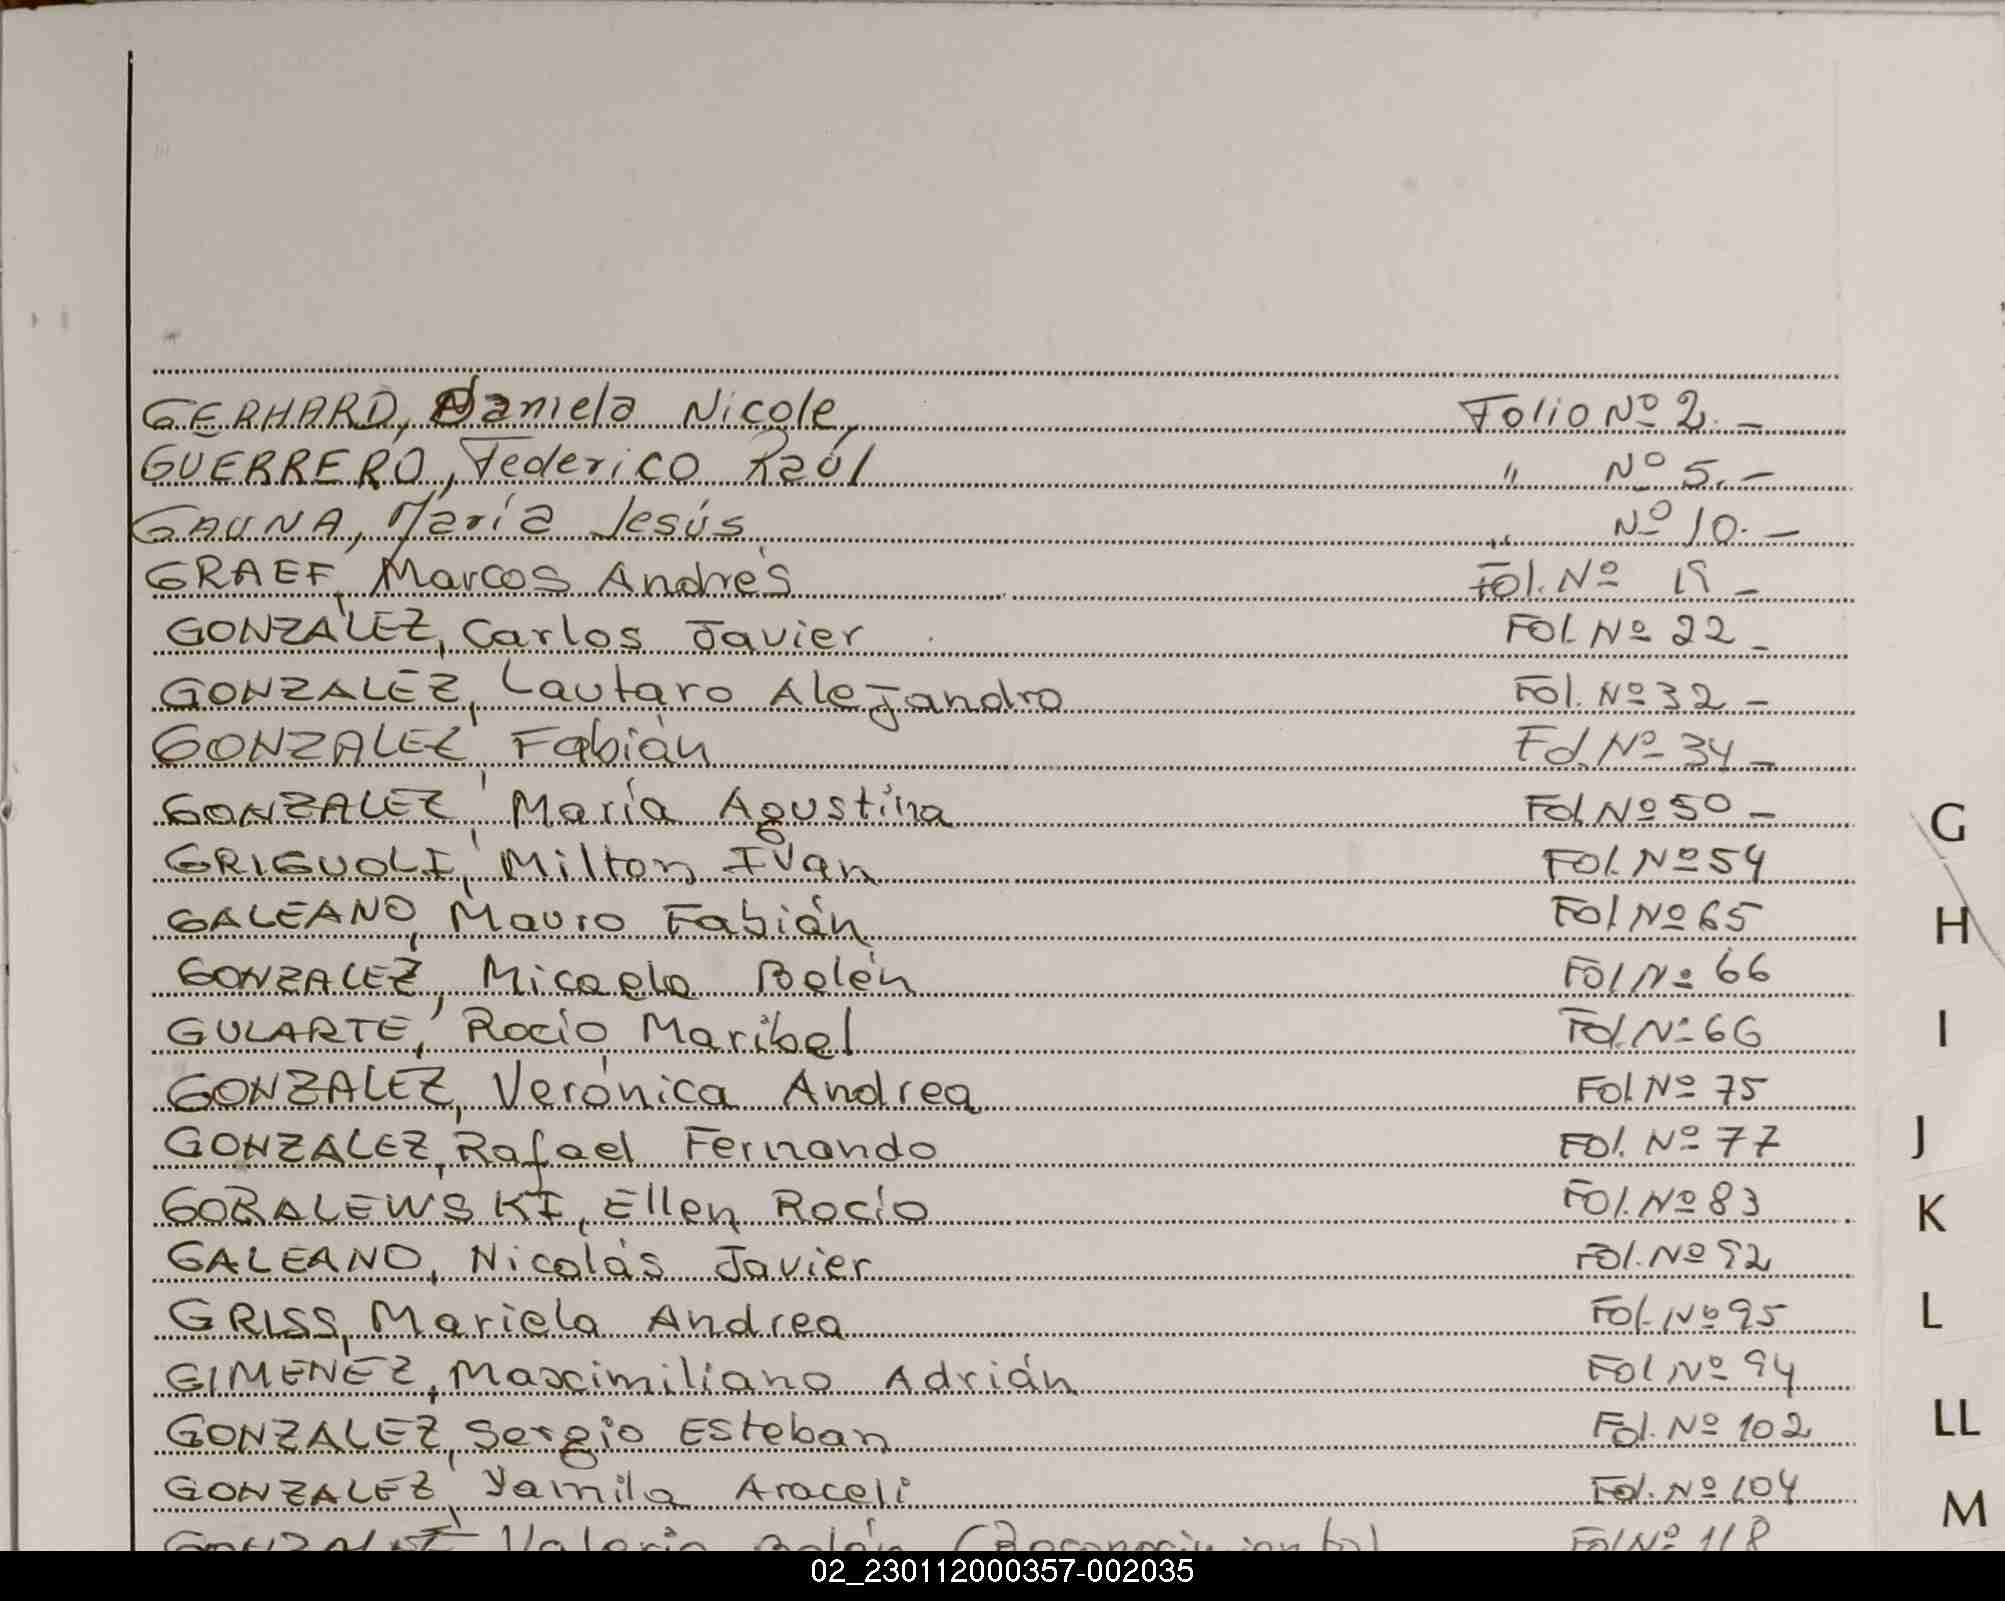 GERHARD, Daniela Nicole, Folio Nº 2. -
GUERRERO, Federico Raúl " Nº 5. -
GAUNA, María Jesús " Nº 10. -
GRAEF, Marcos Andrés Fol. Nº 19 -
GONZALEZ, Carlos Javier Fol. Nº 22 -
GONZALEZ, Lautaro Alejandro Fol. Nº 32 -
GONZALEZ, Fabián Fol. Nº 34 -
GONZALEZ, María Agustina Fol Nº 50 -
GRIGUOLI, Milton Ivan Fol. Nº 54
GALEANO, Mauro Fabián Fol Nº 65
GONZALEZ, Micaela Belén Fol Nº 66
GULARTE, Rocío Maribel Fol. Nº 66
GONZALEZ, Verónica Andrea Fol Nº 75
GONZALEZ, Rafael Fernando Fol. Nº 77
GORALEWSKI, Ellen Rocío Fol. Nº 83
GALEANO, Nicolás Javier Fol. Nº 92
GRISS, Mariela Andrea Fol. Nº 95
GIMENEZ, Maximiliano Adrián Fol Nº 94
GONZALEZ, Sergio Esteban Fol. Nº 102
GONZALEZ, Yamila Araceli Fol. Nº 104
GONZALEZ Valeria Belén (Reconocimiento) Fol Nº 118
G
H
I
J
K
L
LL
M
02_230112000357-002035